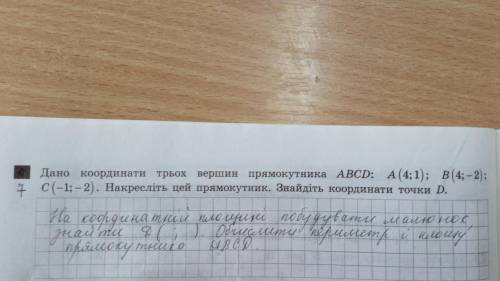 7 Дано координати трьох вершин прямокутника ABCD: A(4;1); B(4;−2);
C(−1;−2). Накресліть цей прямокутник. Знайдіть координати точки D.
На координатній площині побудувати малюнок
знайти D( ; ). Обчислити периметр і площу
прямокутника ABCD.